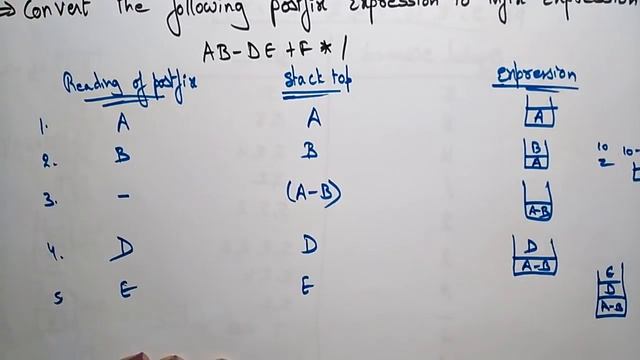 ⇒ Convert the following postfix expression to infix expression
AB-DE+F*/
Reading of postfix Stack top expression
1. A A A
2. B B B A 10 2 10-
3. - (A-B) A-B
4. D D D A-B
5 E E E D A-B